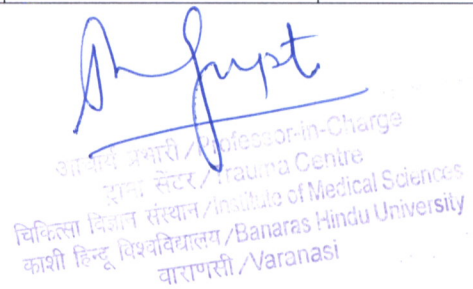 Gupt
आचार्य प्रभारी/Professor-in-Charge
ट्रामा सेंटर/Trauma Centre
चिकित्सा विज्ञान संस्थान/Institute of Medical Sciences
काशी हिन्दू विश्वविद्यालय/Banaras Hindu University
वाराणसी/Varanasi